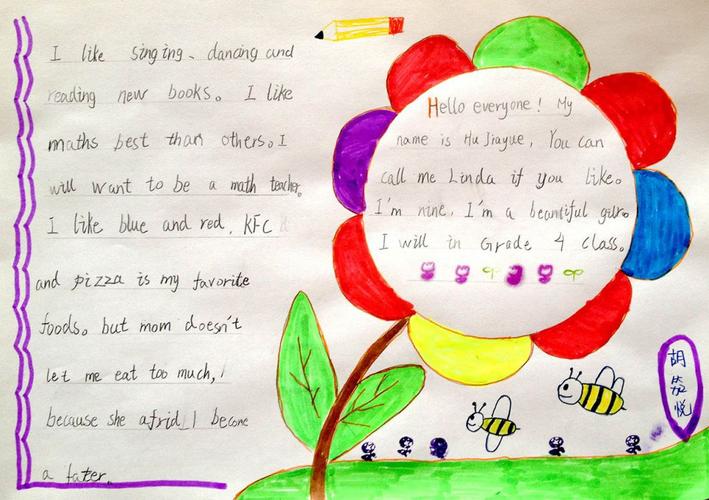 I like singing、dancing and
reading new books。 I like
maths best than others。I
will want to be a math teacher。
I like blue and red. KFC
and pizza is my favorite
foods。but mom doesn't
let me eat too much,
because she afrid I become
a fater.
Hello everyone! My
name is Hu Jiayue, You can
call me Linda if you like。
I'm nine, I'm a beautiful
I will in Grade 4 class。
胡
悦